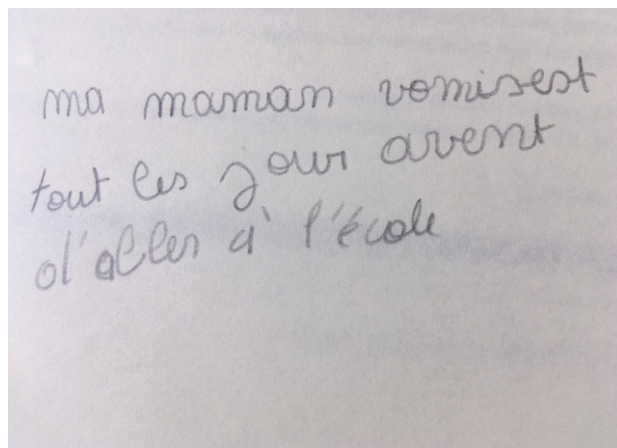 ma maman vomisest
tout les jour avent
d'aller à l'école